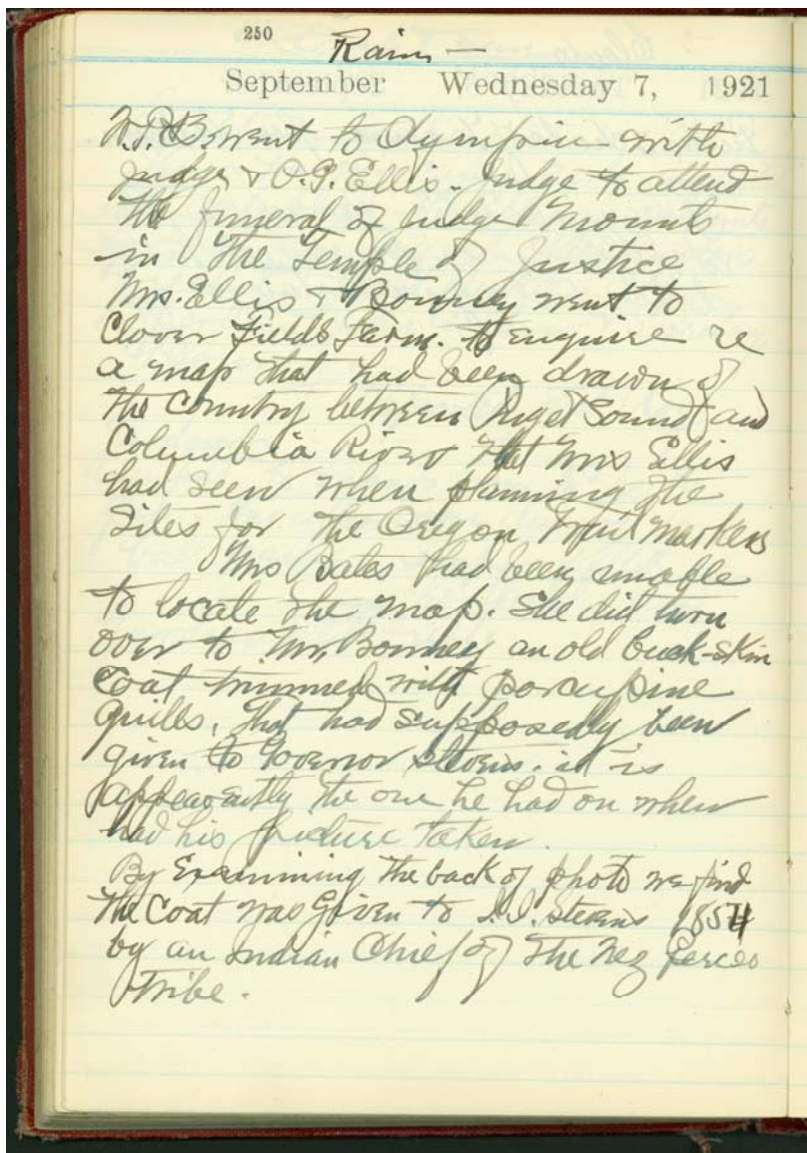 250
Rain —
September Wednesday 7, 1921
W.P.B. went to Olympia with
Judge & O.G. Ellis. Judge to attend
the funeral of Judge Mounts
in the Temple of Justice
Mrs. Ellis & Bonney went to
Clover Fields Farm. to enquire re
a map that had been drawn of
the Country between Puget Sound and
Columbia River that Mrs Ellis
had seen when planning the
Sites for the Oregon Trail Markers
Mrs Bates had been unable
to locate the map. She did turn
over to Mr. Bonney an old buck-skin
Coat trimmed with porcupine
quills, that had supposedly been
given to Governor Stevens. it is
appearently the one he had on when
had his picture taken.
By Examining the back of photo we find
the Coat was Given to I.I. Stevens 1854
by an Indian Chief of the Nez Perces
tribe.